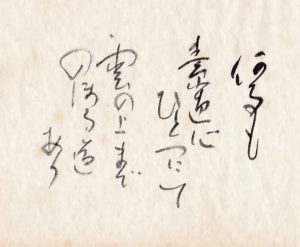 何事も
ひとつにて
雲の上まで
のほる道
あり